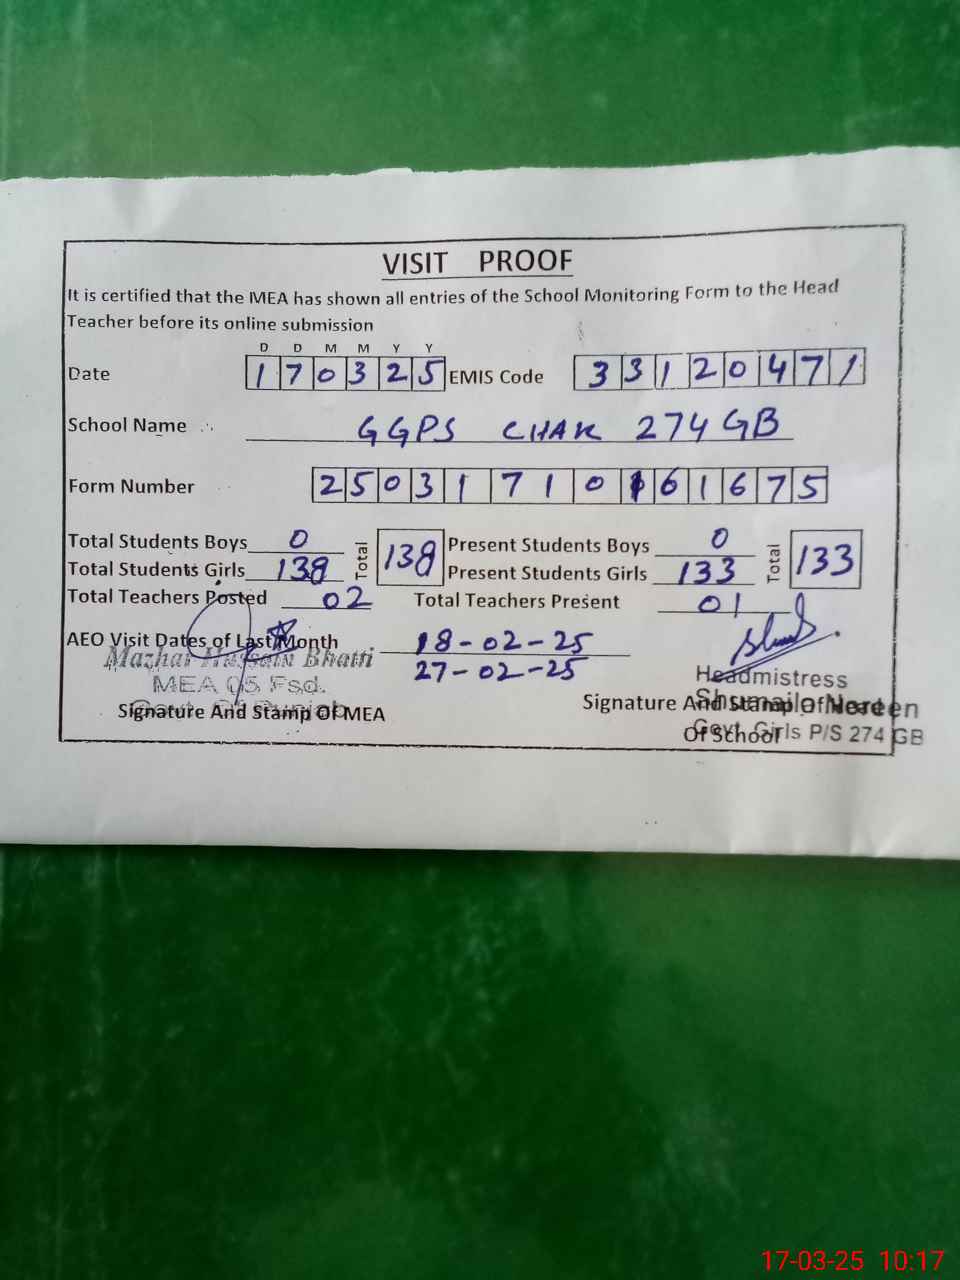 VISIT PROOF
It is certified that the MEA has shown all entries of the School Monitoring Form to the Head
Teacher before its online submission
D D M M Y Y
Date 170325 EMIS Code 33120471
School Name GGPS CHAK 274 GB
Form Number 25031710161675
Total Students Boys 0 Total 138 Present Students Boys 0 Total 133
Total Students Girls 138 Present Students Girls 133
Total Teachers Posted 02 Total Teachers Present 01
AEO Visit Dates of Last Month 18-02-25
27-02-25
Mazhar Hussain Bhatti
MEA 05 Fsd.
Govt. Of Punjab
Signature And Stamp Of MEA
Headmistress
Shumaila Noreen
Govt. Girls P/S 274 GB
Signature And Stamp Of Head
Of School
17-03-25 10:17